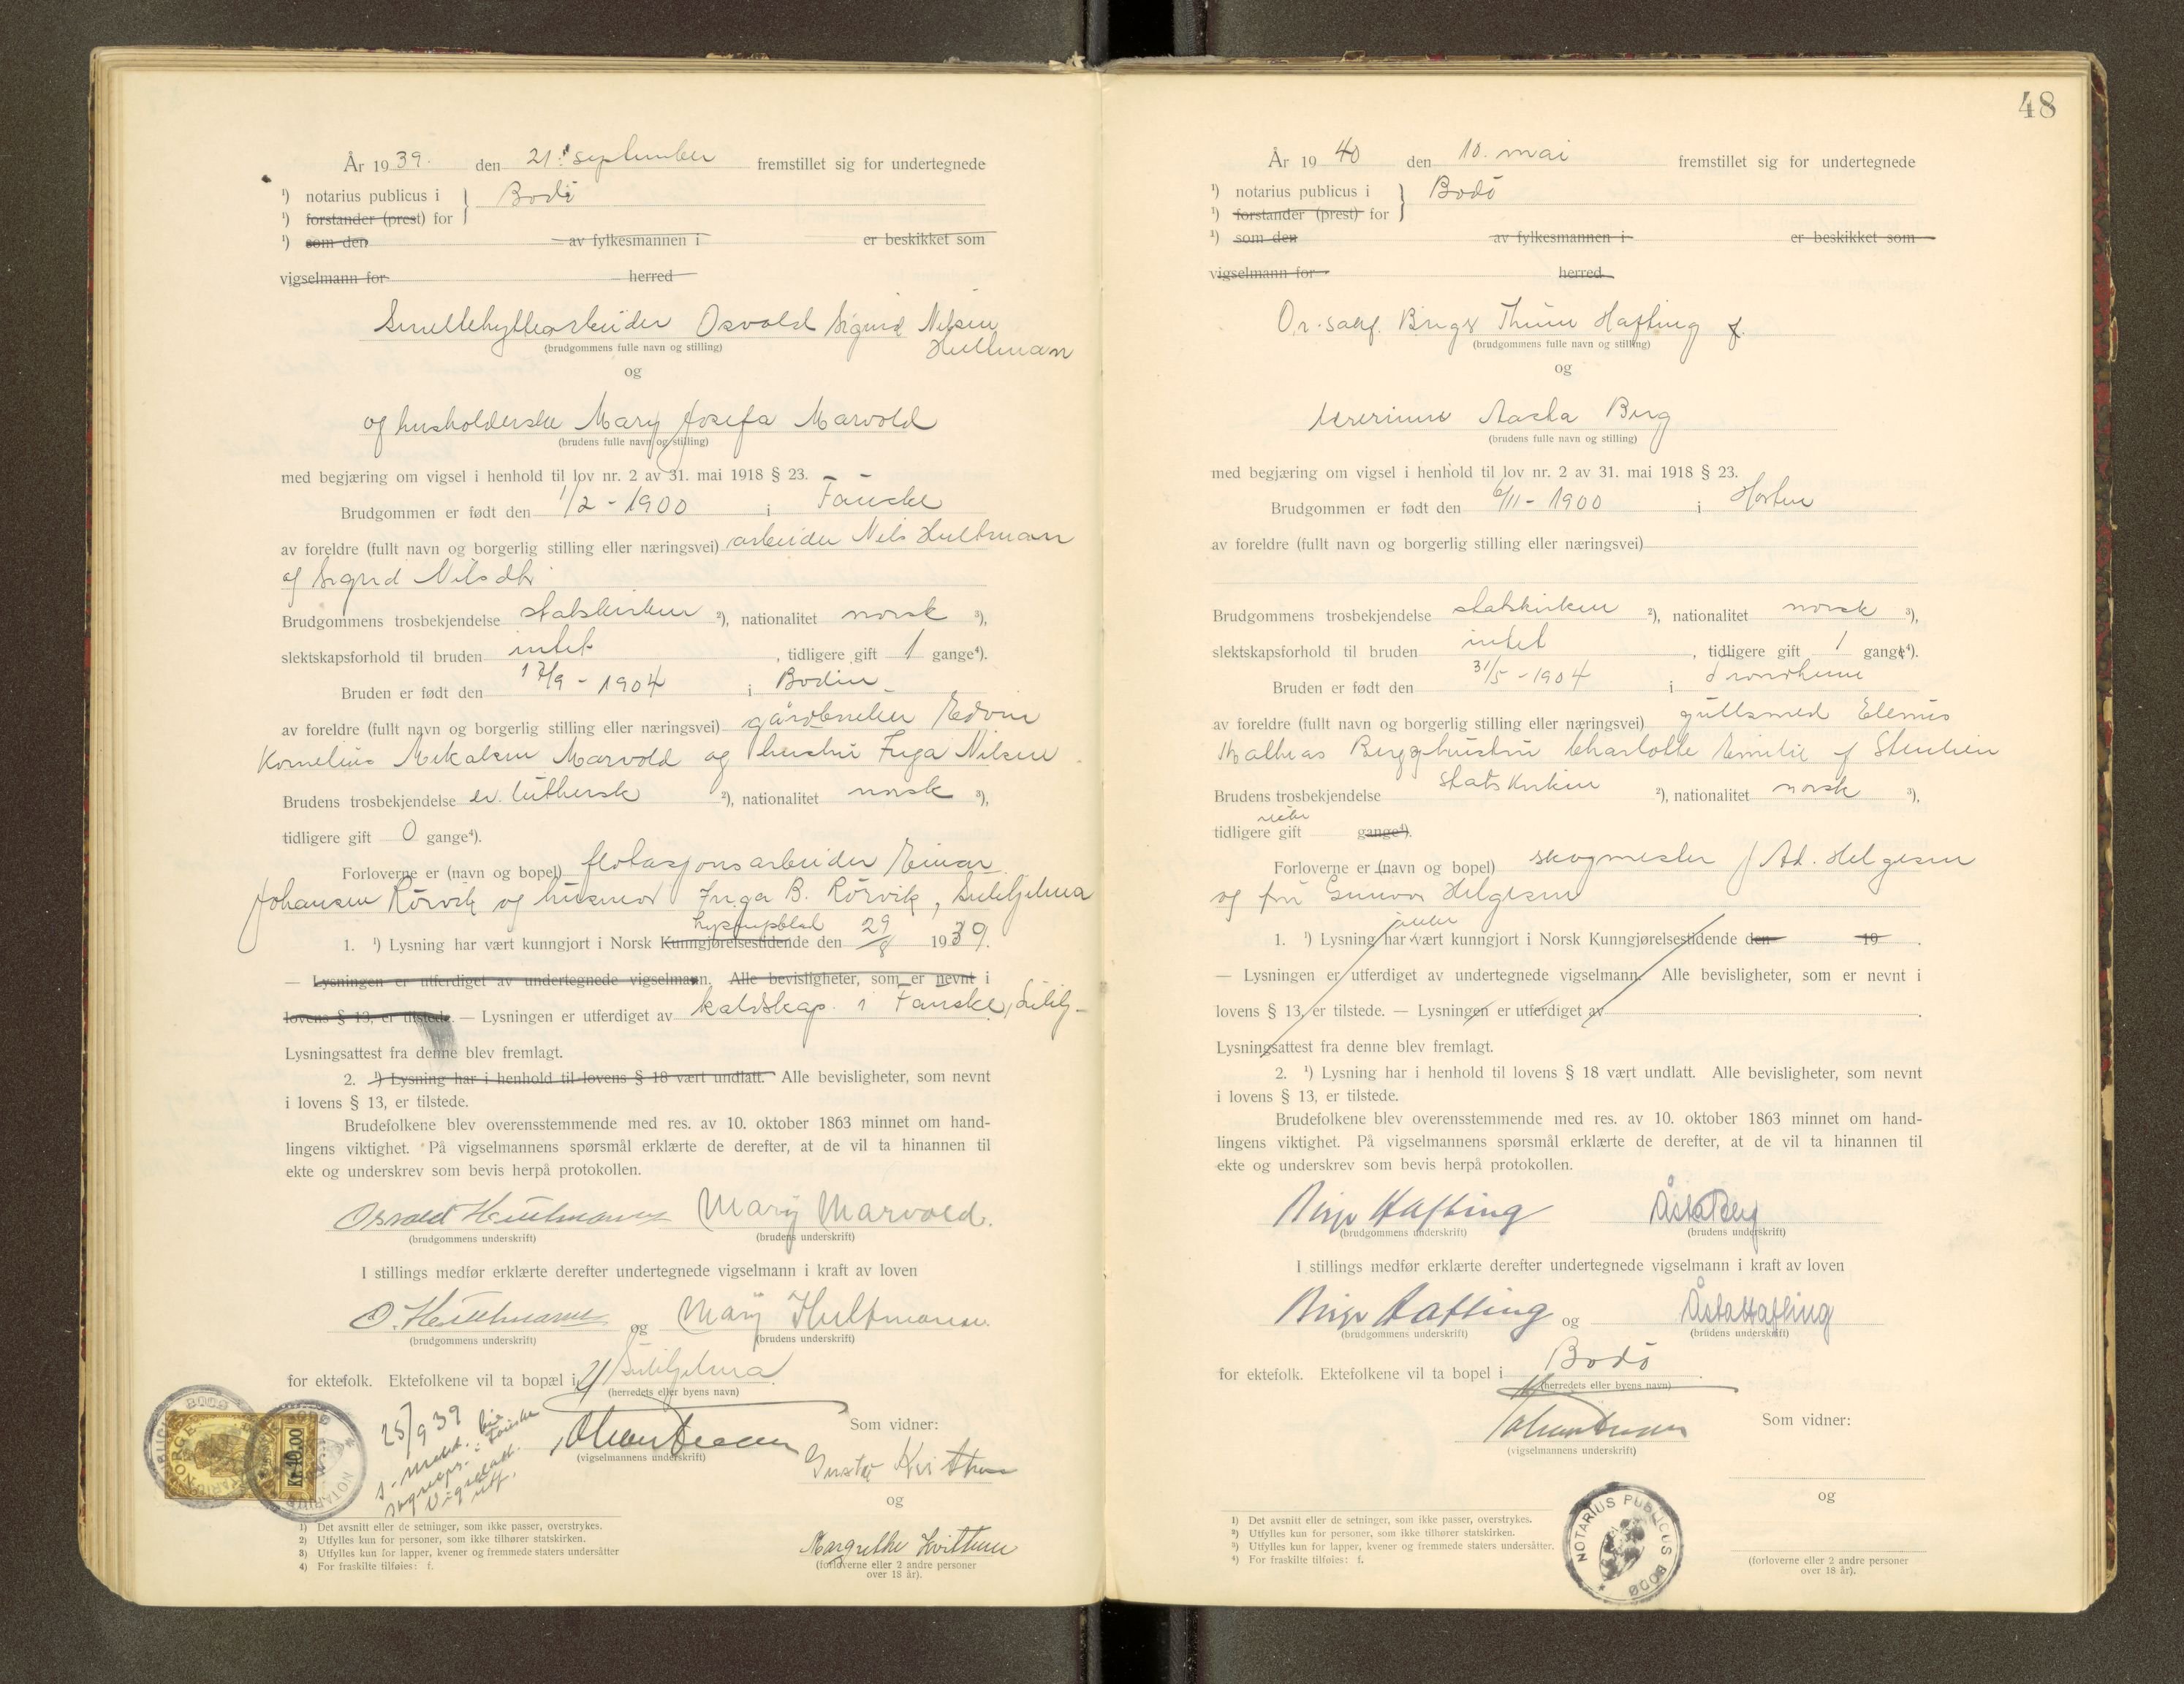 År 1939. den 21. september fremstillet sig for undertegnede
¹) notarius publicus i } Bodø
¹) forstander (prest) for
¹) som den av fylkesmannen i er beskikket som
vigselmann for herred
Smeltehyttearbeider Osvald Sigurd Nilsen
Hultman
(brudgommens fulle navn og stilling)
og
og husholderske Mary Josefa Marvold
(brudens fulle navn og stilling)
med begjæring om vigsel i henhold til lov nr. 2 av 31. mai 1918 § 23.
Brudgommen er født den 1/2 - 1900 i Fauske
av foreldre (fullt navn og borgerlig stilling eller næringsvei) arbeider Nils Hultman
og Sigrid Nilsdtr
Brudgommens trosbekjendelse statskirken ²), nationalitet norsk ³),
slektskapsforhold til bruden intet , tidligere gift 1 gange⁴).
Bruden er født den 17/9 - 1904 i Bodin
av foreldre (fullt navn og borgerlig stilling eller næringsvei) gårdbruker Edvin
Kornelius Mikalsen Marvold og hustru Inga Nilsen
Brudens trosbekjendelse ev. luthersk ²), nationalitet norsk ³),
tidligere gift 0 gange⁴).
Forloverne er (navn og bopel) flotasjonsarbeider Einar
Johansen Rörvik og husmor Inga B. Rörvik, Sulitjelma
lysingsblad
1. ¹) Lysning har vært kunngjort i Norsk Kunngjørelsestidende den 29/8 1939.
— Lysningen er utferdiget av undertegnede vigselmann. Alle bevisligheter, som er nevnt i
lovens § 13, er tilstede. — Lysningen er utferdiget av kaldskap. i Fauske, Sulitj-
Lysningsattest fra denne blev fremlagt.
2. ¹) Lysning har i henhold til lovens § 18 vært undlatt. Alle bevisligheter, som nevnt
i lovens § 13, er tilstede.
Brudefolkene blev overensstemmende med res. av 10. oktober 1863 minnet om hand-
lingens viktighet. På vigselmannens spørsmål erklærte de derefter, at de vil ta hinannen til
ekte og underskrev som bevis herpå protokollen.
Osvald Hultmann Mary Marvold.
(brudgommens underskrift) (brudens underskrift)
I stillings medfør erklærte derefter undertegnede vigselmann i kraft av loven
O. Hultmann og Mary Hultmann.
(brudgommens underskrift) (brudens underskrift)
for ektefolk. Ektefolkene vil ta bopæl i Sulitjelma
(herredets eller byens navn)
25/9 39
Som vidner:
(vigselmannens underskrift)
NORGE
Kr. 10.00
NOTARIUS
BODØ
og
Margrethe Kvithun
(forloverne eller 2 andre personer
over 18 år).
1) Det avsnitt eller de setninger, som ikke passer, overstrykes.
2) Utfylles kun for personer, som ikke tilhører statskirken.
3) Utfylles kun for lapper, kvener og fremmede staters undersåtter
4) For fraskilte tilføies: f.
48
År 1940 den 10. mai fremstillet sig for undertegnede
¹) notarius publicus i } Bodø
¹) forstander (prest) for
¹) som den av fylkesmannen i er beskikket som
vigselmann for herred
O.r.sakf. Birger Hafting f.
(brudgommens fulle navn og stilling)
og
Aasta Berg
(brudens fulle navn og stilling)
med begjæring om vigsel i henhold til lov nr. 2 av 31. mai 1918 § 23.
Brudgommen er født den 6/11 - 1900 i Horten
av foreldre (fullt navn og borgerlig stilling eller næringsvei)
Brudgommens trosbekjendelse statskirken ²), nationalitet norsk ³),
slektskapsforhold til bruden intet , tidligere gift 1 gange⁴).
Bruden er født den 31/5 - 1904 i Trondheim
av foreldre (fullt navn og borgerlig stilling eller næringsvei) gullsmed Elenus
Mathias Berg og hustru Charlotte Emilie f Stenlien
Brudens trosbekjendelse statskirken ²), nationalitet norsk ³),
tidligere gift gange⁴).
Forloverne er (navn og bopel) skogmester J Ad. Helgesen
og fru Gunvor Helgesen
1. ¹) Lysning har vært kunngjort i Norsk Kunngjørelsestidende den 19 .
— Lysningen er utferdiget av undertegnede vigselmann. Alle bevisligheter, som er nevnt i
lovens § 13, er tilstede. — Lysningen er utferdiget av .
Lysningsattest fra denne blev fremlagt.
2. ¹) Lysning har i henhold til lovens § 18 vært undlatt. Alle bevisligheter, som nevnt
i lovens § 13, er tilstede.
Brudefolkene blev overensstemmende med res. av 10. oktober 1863 minnet om hand-
lingens viktighet. På vigselmannens spørsmål erklærte de derefter, at de vil ta hinannen til
ekte og underskrev som bevis herpå protokollen.
Birger Hafting Åsta Berg
(brudgommens underskrift) (brudens underskrift)
I stillings medfør erklærte derefter undertegnede vigselmann i kraft av loven
Birger Hafting og Åsta Hafting
(brudgommens underskrift) (brudens underskrift)
for ektefolk. Ektefolkene vil ta bopel i Bodø
(herredets eller byens navn)
Som vidner:
(vigselmannens underskrift)
og
NOTARIUS PUBLICUS BODØ
(forloverne eller 2 andre personer
over 18 år).
¹) Det avsnitt eller de setninger, som ikke passer, overstrykes.
²) Utfylles kun for personer, som ikke tilhører statskirken.
³) Utfylles kun for lapper, kvener og fremmede staters undersåtter.
⁴) For fraskilte tilføies: f.